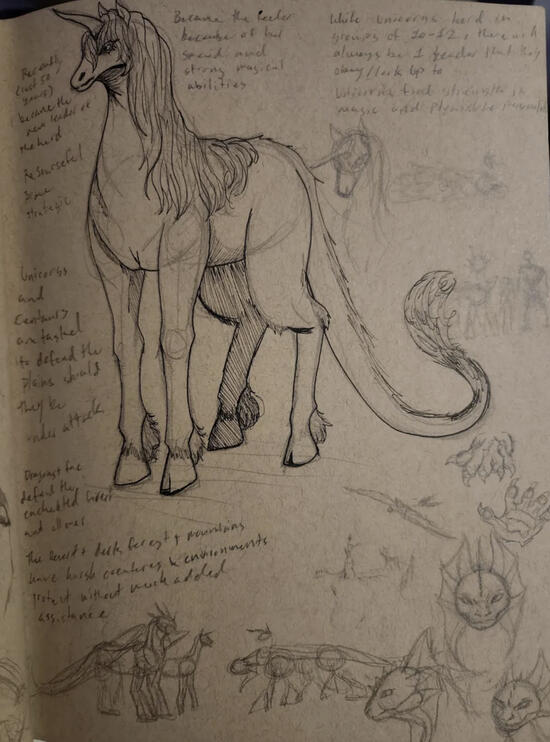 Became the leader
because of her
speed and
strong magical
abilities
While Unicorns herd in
groups of 10-12, there will
always be 1 leader that they
obey/look up to
Unicorns find strength in
magic and
Recently
(last 50
years)
became the
new leader of
the herd
Resourceful
strategic
Unicorns
and
Centaurs
are tasked
to defend the
plains should
they be
under attack
Dragons
defend the
enchanted forest
and
The desert & dark forest & mountains
have harsh creatures & environments
protect without much added
assistance